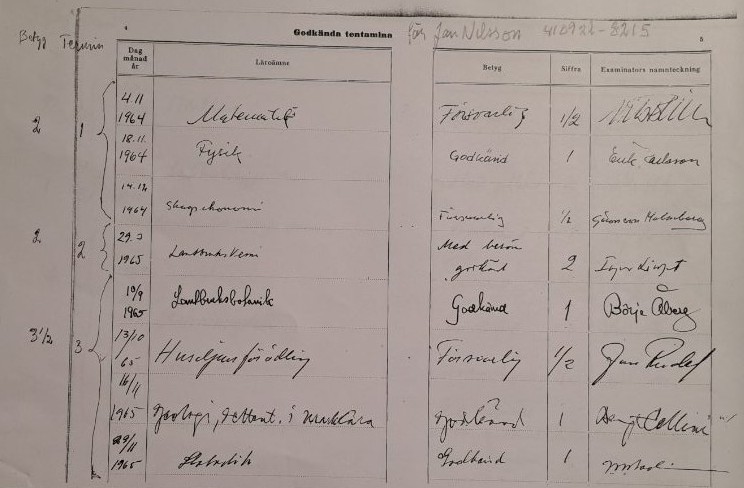 4
Godkända tentamina för Jan Nilsson 410922-8215
5
Betyg Termin
Dag månad år Läroämne Betyg Siffra Examinators namnteckning
4.11
1964 Matematik Försvarlig 1/2
2 1
18.11
1964 Fysik Godkänd 1 Erik Carlsson
14.12
1964 Skogsekonomi Försvarlig 1/2 Malmberg
2 2
29.3
1965 Lantbrukskemi Med beröm godkänd 2
10/9
1965 Lantbruksbotanik Godkänd 1 Börje Åberg
3 1/2 3
13/10
65 Husdjursförädling Försvarlig 1/2 Jan
16/11
1965 Zoologi, i Godkänd 1 Bengt
29/11
1965 Statistik Godkänd 1